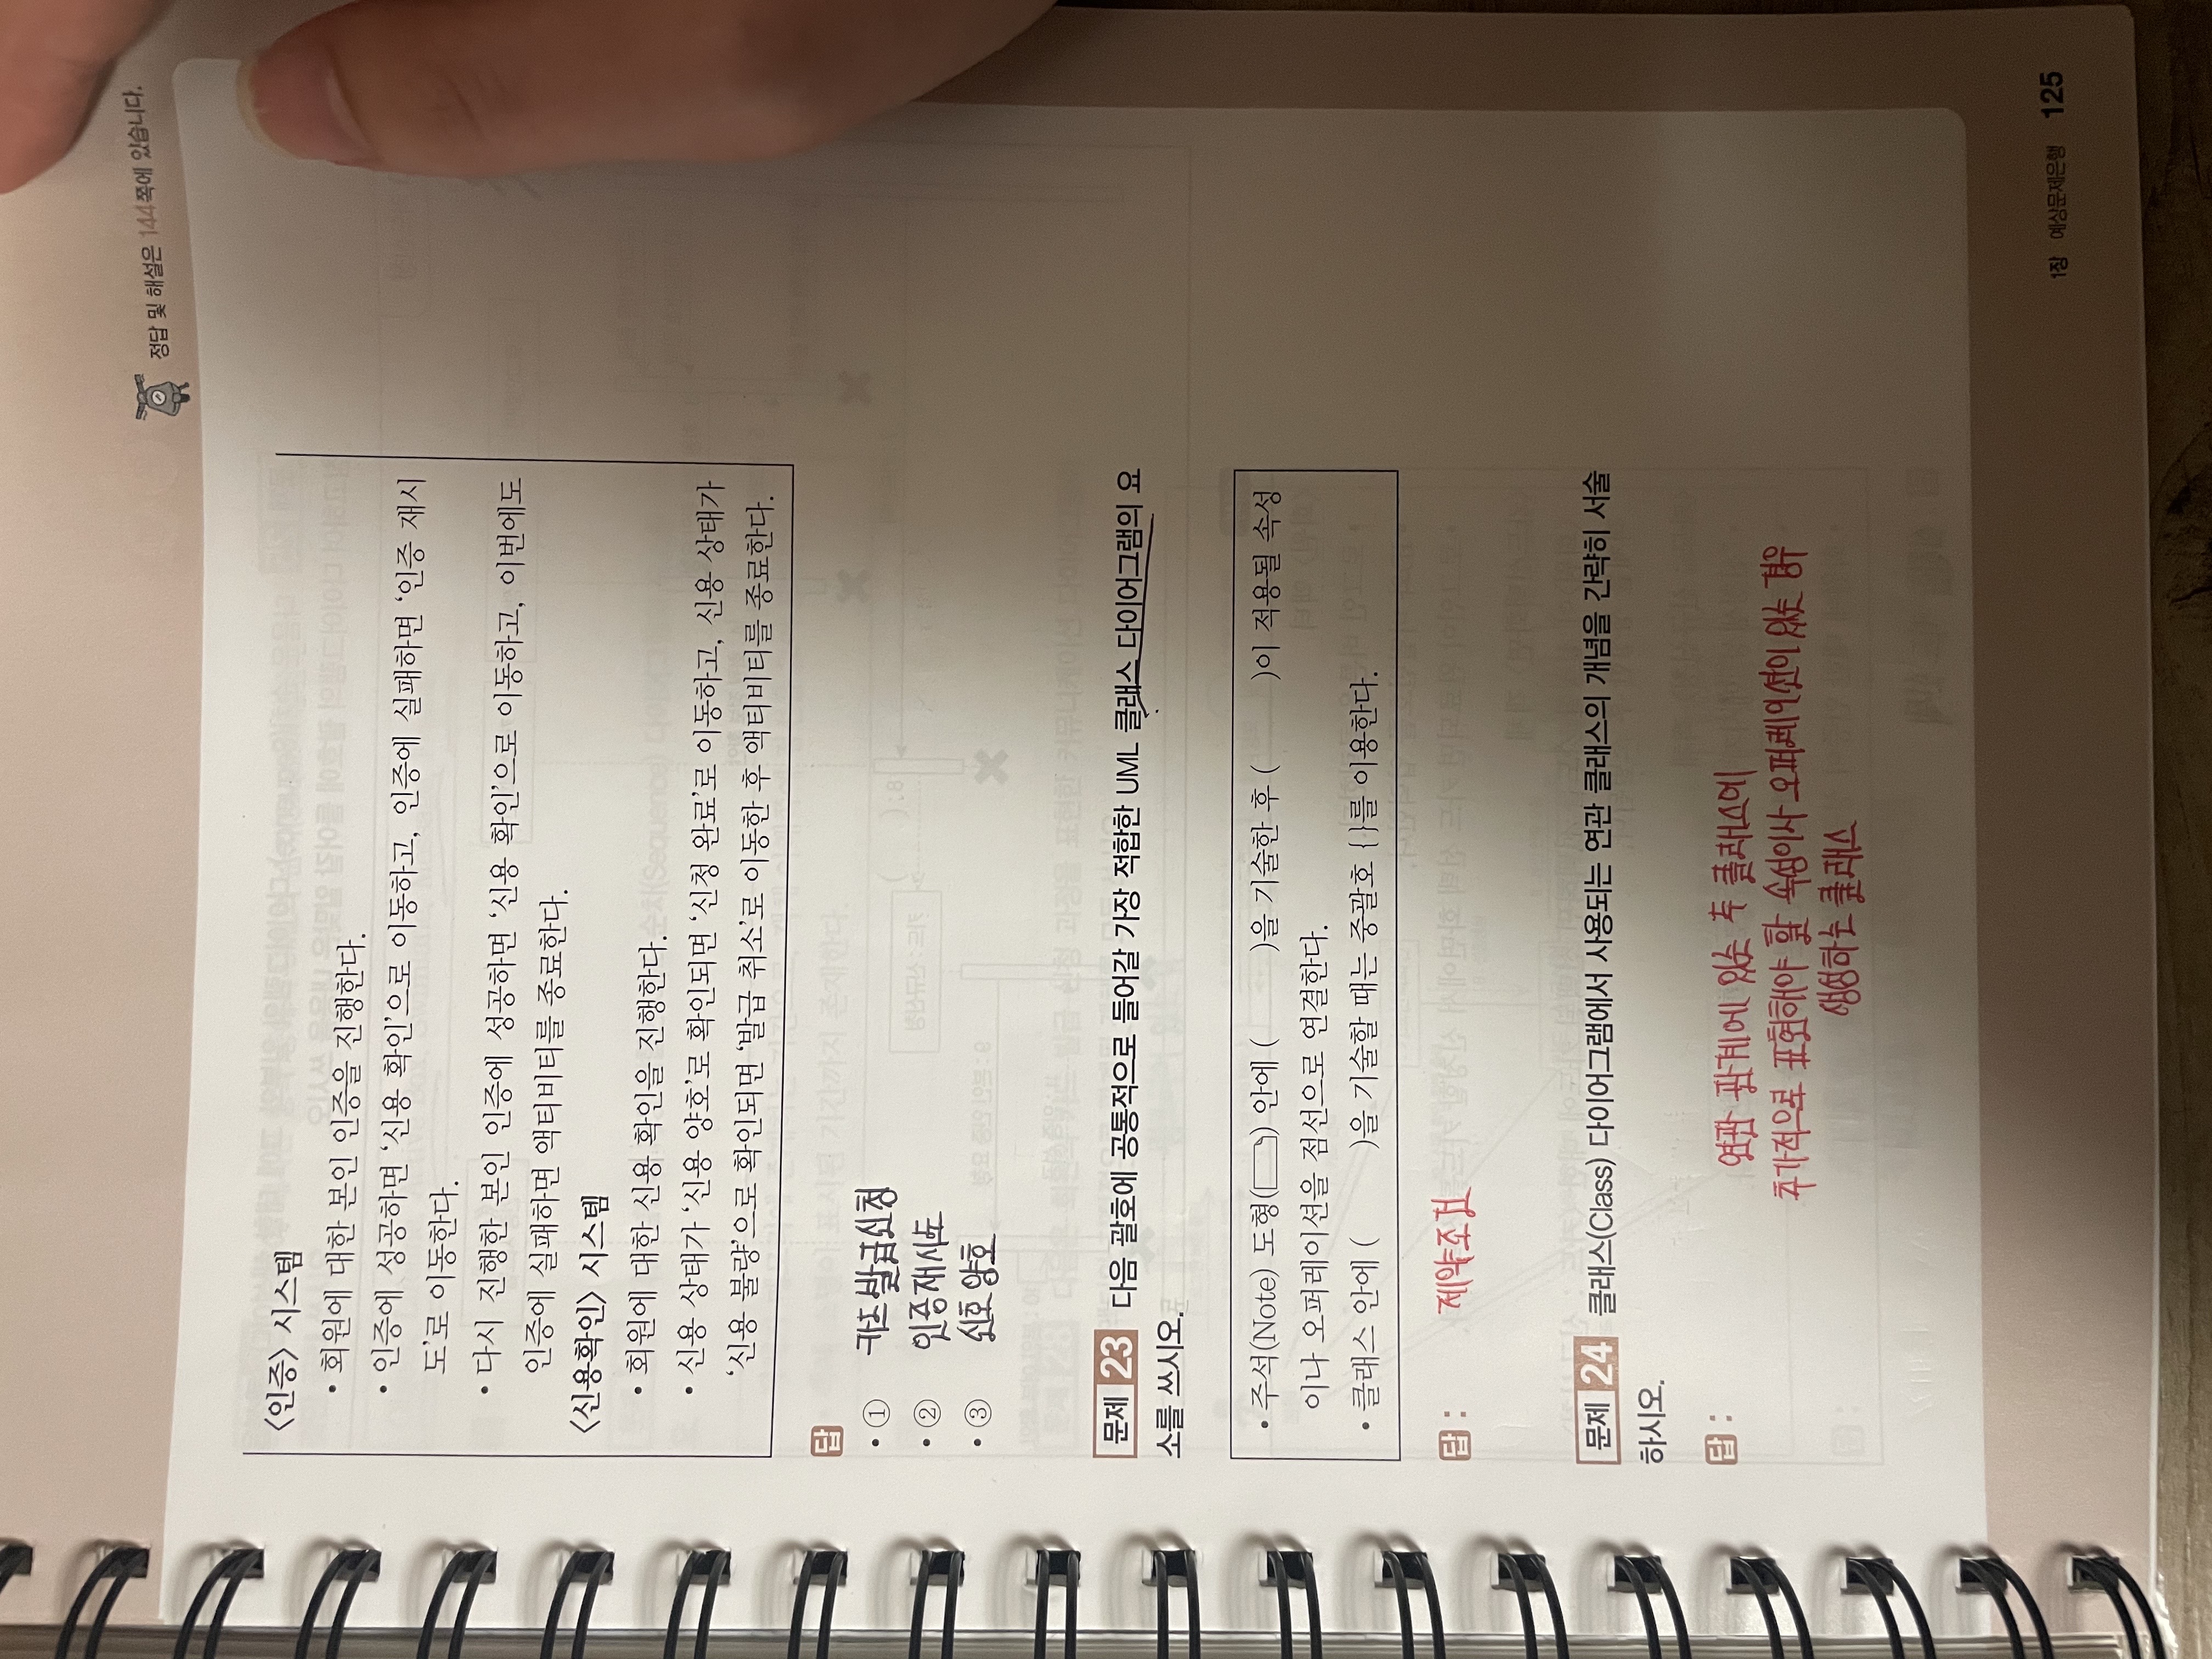 정답 및 해설은 144쪽에 있습니다.
〈인증〉 시스템
• 회원에 대한 본인 인증을 진행한다.
• 인증에 성공하면 ‘신용 확인’으로 이동하고, 인증에 실패하면 ‘인증 재시
도’로 이동한다.
• 다시 진행한 본인 인증에 성공하면 ‘신용 확인’으로 이동하고, 이번에도
인증에 실패하면 액티비티를 종료한다.
〈신용확인〉 시스템
• 회원에 대한 신용 확인을 진행한다.
• 신용 상태가 ‘신용 양호’로 확인되면 ‘신청 완료’로 이동하고, 신용 상태가
‘신용 불량’으로 확인되면 ‘발급 취소’로 이동한 후 액티비티를 종료한다.
답
• ① 카드 발급신청
• ② 인증재시도
• ③ 신호양호
문제 23 다음 괄호에 공통적으로 들어갈 가장 적합한 UML 클래스 다이어그램의 요
소를 쓰시오.
• 주석(Note) 도형( ) 안에 ( )을 기술한 후 ( )이 적용될 속성
이나 오퍼레이션을 점선으로 연결한다.
• 클래스 안에 ( )을 기술할 때는 중괄호 { }를 이용한다.
답 : 제약조건
문제 24 클래스(Class) 다이어그램에서 사용되는 연관 클래스의 개념을 간략히 서술
하시오.
답 :
연관 관계에 있는 두 클래스에
추가적으로 표현해야 할 속성이나 오퍼레이션이 있는 경우
생성하는 클래스
1장 예상문제은행 125